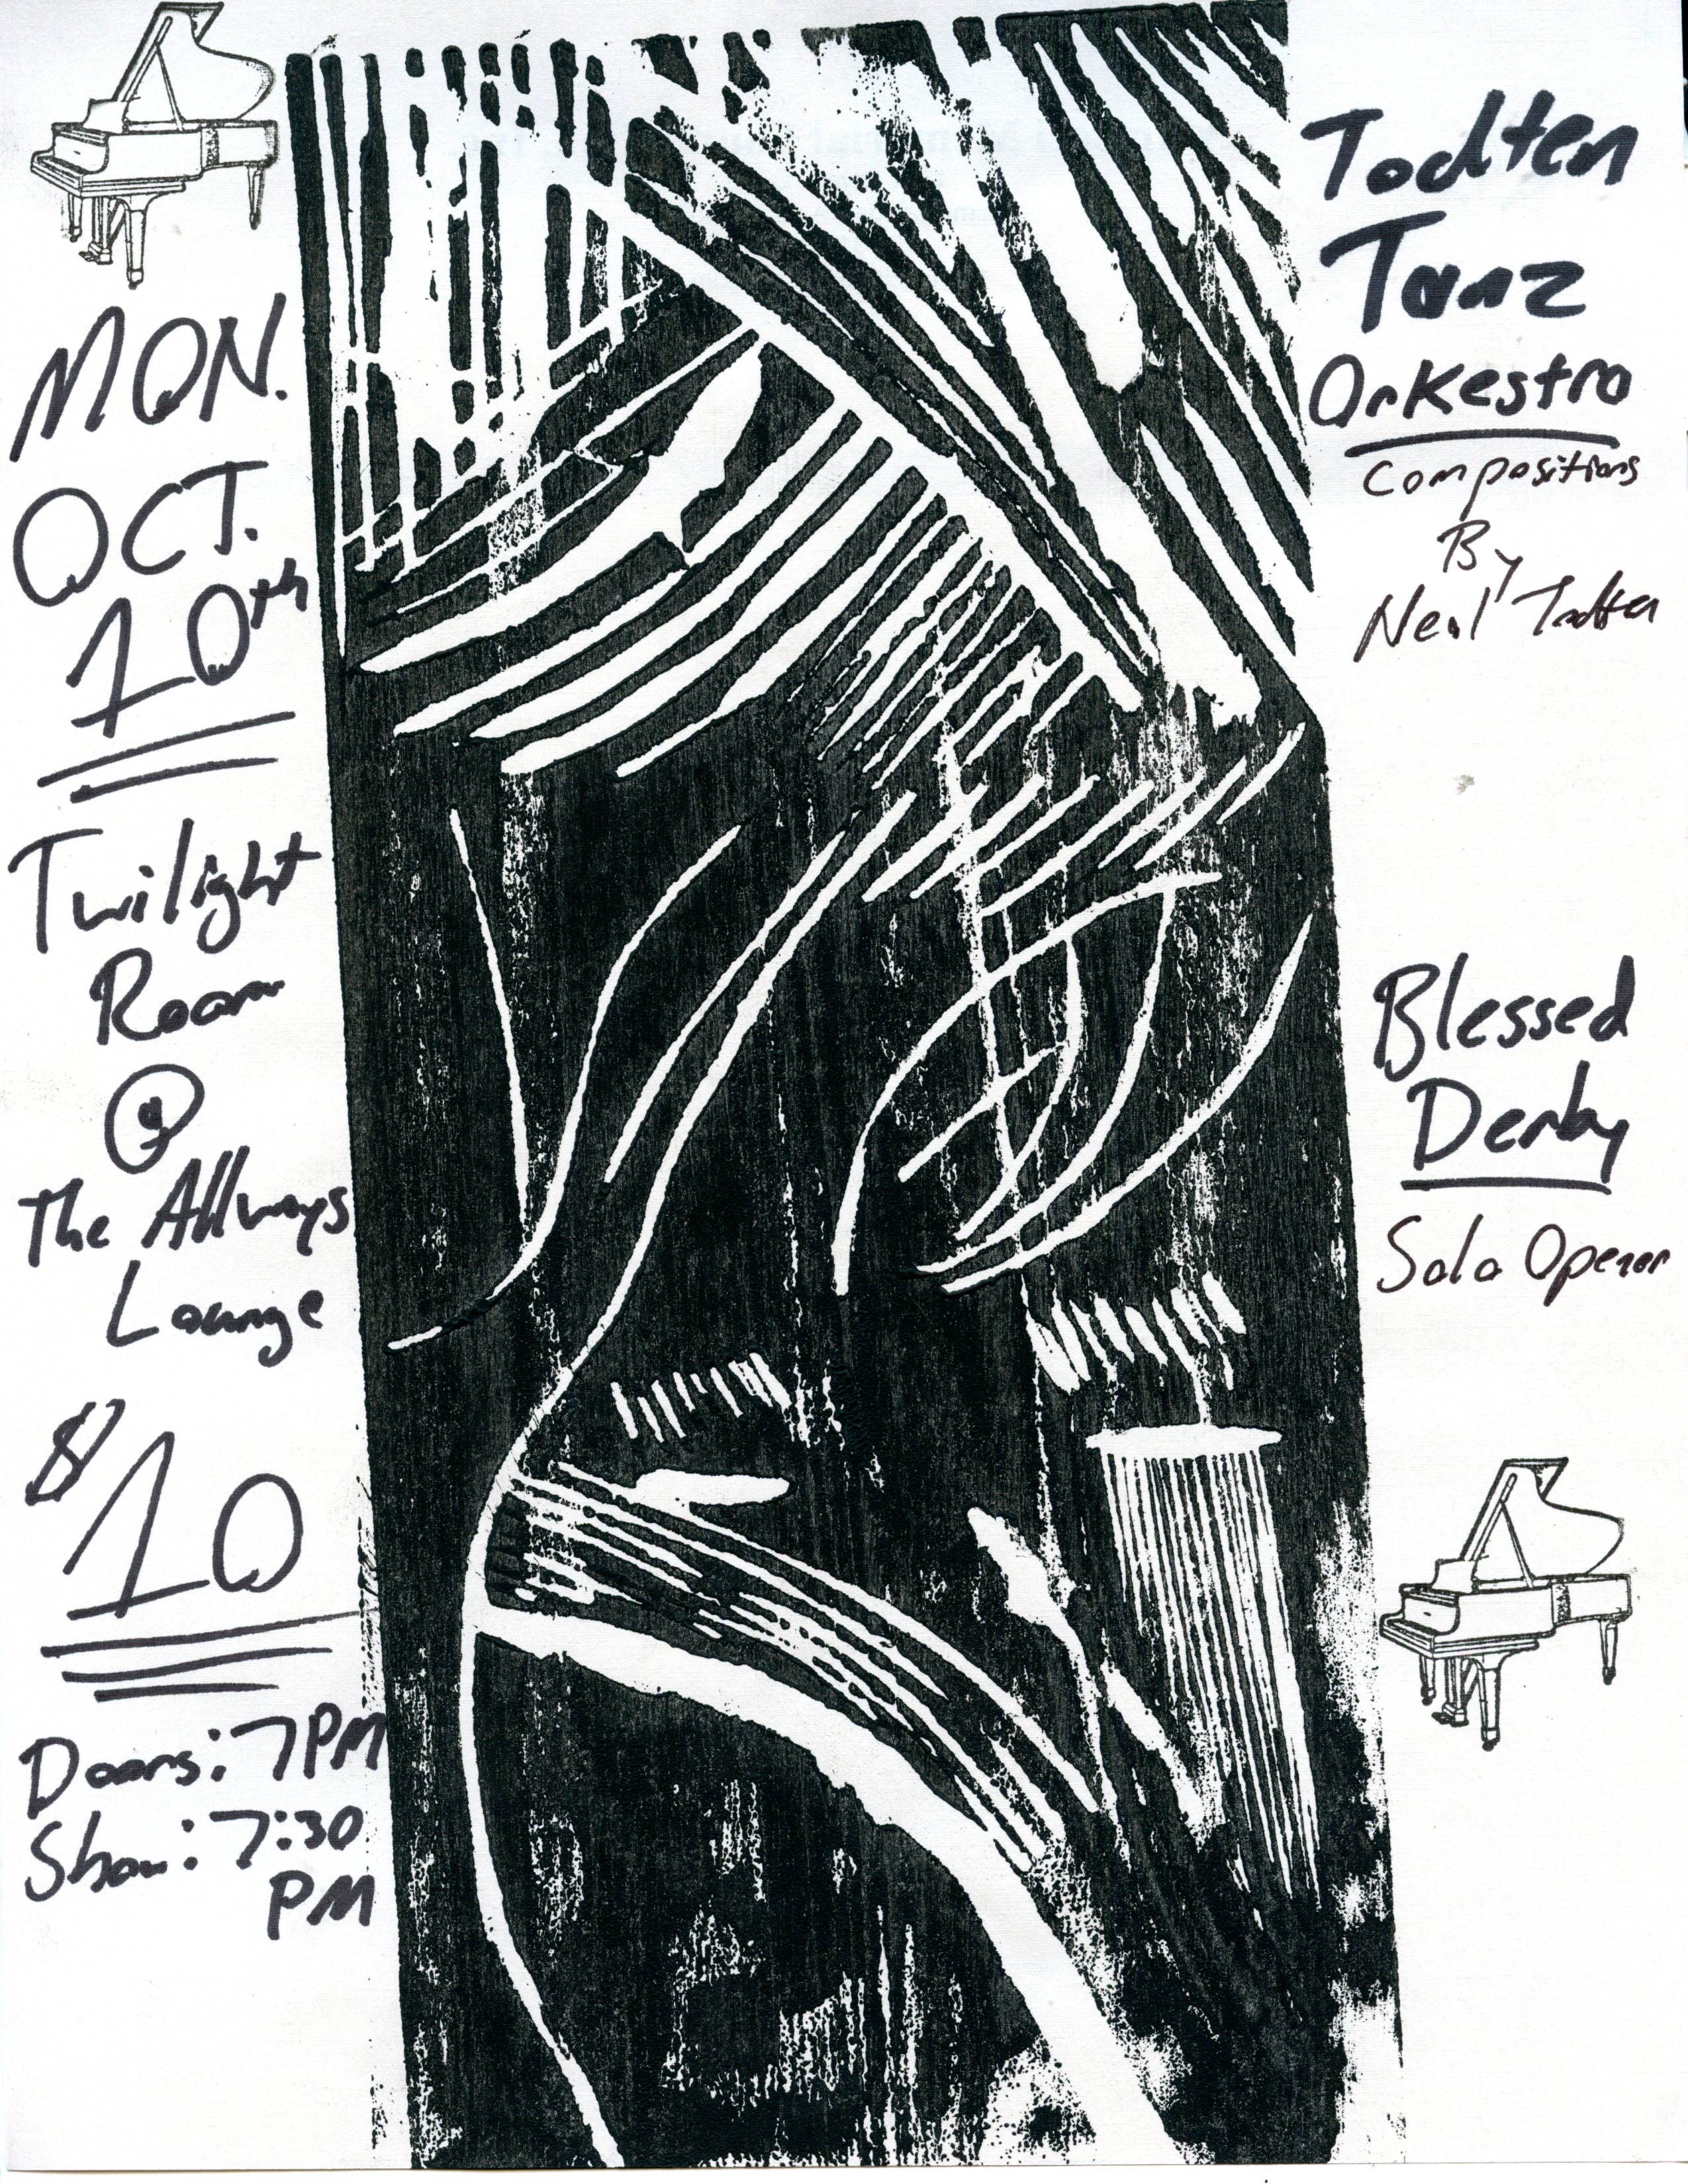 MON.
OCT.
10th
Twilight
Room
@
The Allways
Lounge
$10
Doors: 7PM
Show: 7:30
PM
Todten
Tanz
Orkestro
Compositions
By
Neal Todten
Blessed
Derby
Solo Opener